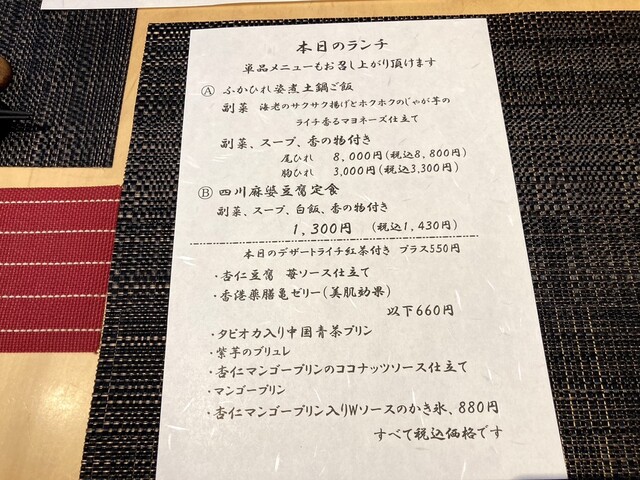 本日のランチ
単品メニューもお召し上がり頂けます
Ⓐ ふかひれ姿煮土鍋ご飯
副菜 海老のサクサク揚げとホクホクのじゃが芋の
ライチ香るマヨネーズ仕立て
副菜、スープ、香の物付き
尾ひれ 8,000円(税込8,800円)
胸ひれ 3,000円(税込3,300円)
Ⓑ 四川麻婆豆腐定食
副菜、スープ、白飯、香の物付き
1,300円 (税込1,430円)
本日のデザートライチ紅茶付き プラス550円
・杏仁豆腐 苺ソース仕立て
・香港薬膳亀ゼリー(美肌効果)
以下660円
・タピオカ入り中国青茶プリン
・紫芋のブリュレ
・杏仁マンゴープリンのココナッツソース仕立て
・マンゴープリン
・杏仁マンゴープリン入りWソースのかき氷、880円
すべて税込価格です